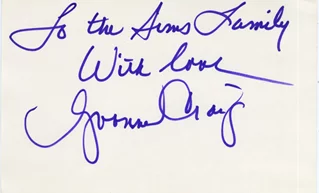 To the Sims Family
With love
Yvonne Craig